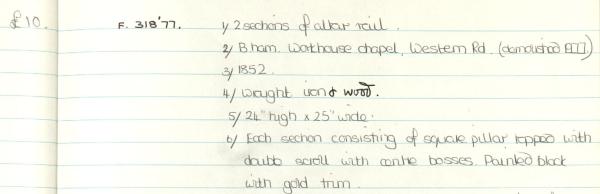 £10. F. 318'77. 1/ 2 sections of altar rail.
2/ B'ham. Workhouse chapel, Western Rd. (demolished
3/ 1852.
4/ Wrought iron & wood.
5/ 24" high x 25" wide.
6/ Each section consisting of square pillar topped with
double scroll with centre bosses. Painted black
with gold trim.